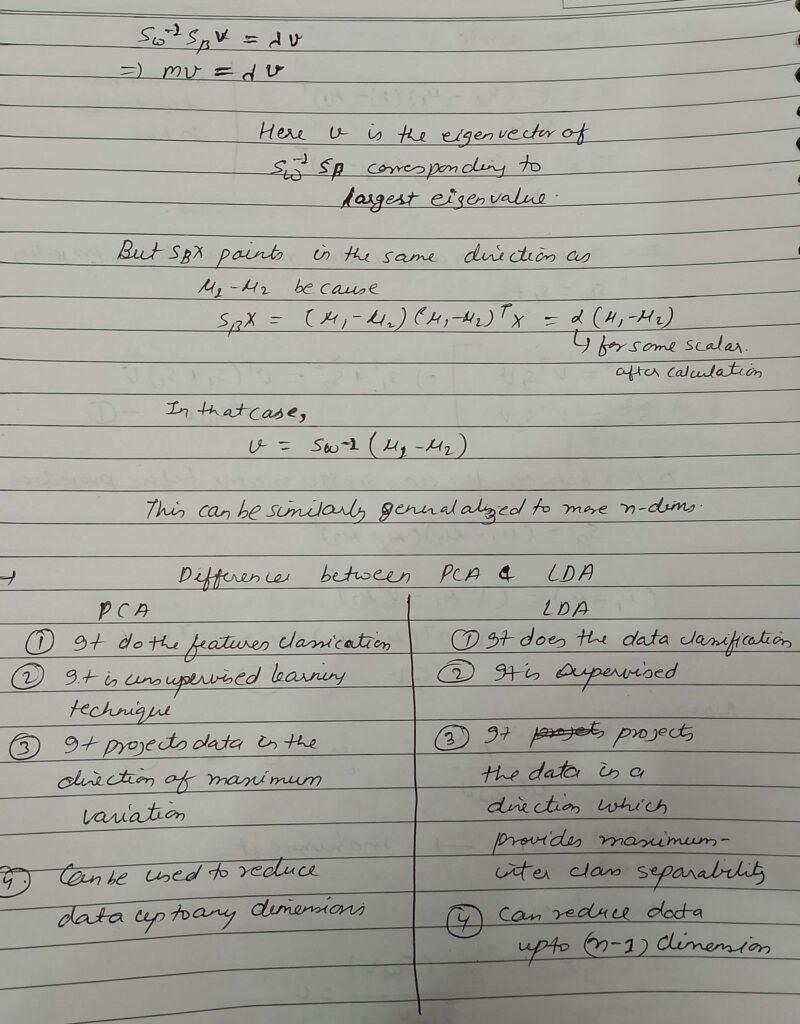 Sω⁻¹ Sβ v = λ v
=) mv = λ v
Here v is the eigenvector of
Sω⁻¹ Sβ corresponding to
largest eigenvalue.
But SBX points in the same direction as
μ1-μ2 because
SβX = (μ1-μ2)(μ1-μ2)ᵀX = α(μ1-μ2)
↳ for some scalar.
after calculation
In that case,
v = Sω-1(μ1-μ2)
This can be similarly generalalized to more n-dims.
→ Differences between PCA & LDA
PCA
① It do the features classication
② It is unsupervised learning
technique
③ It projects data in the
direction of maximum
variation
④ Can be used to reduce
data upto any dimensions
LDA
① It does the data classification
② It is supervised
③ It projets projects
the data in a
direction which
provides maximum-
inter class separability
④ Can reduce data
upto (n-1) dimension